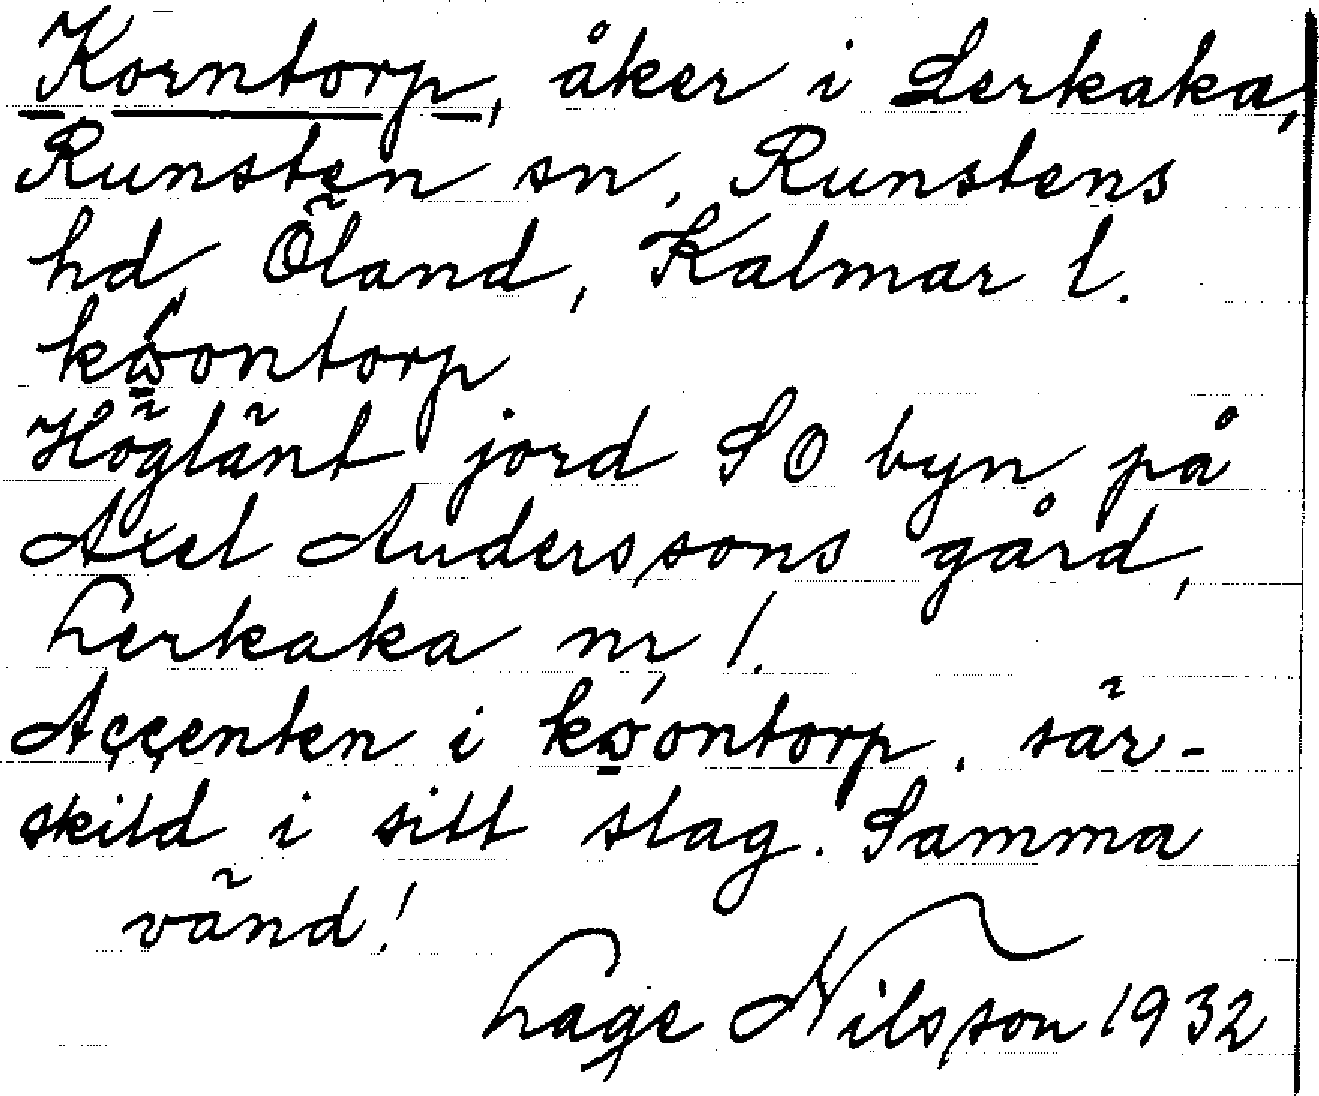 Korntorp, åker i Lerkaka,
Runsten sn, Runstens
hd, Öland, Kalmar l.
Höglänt jord SO byn på
Axel Anderssons gård,
Lerkaka nr 1.
Accenten i särskild i sitt slag. Samma
vänd!
Lage Nilsson 1932